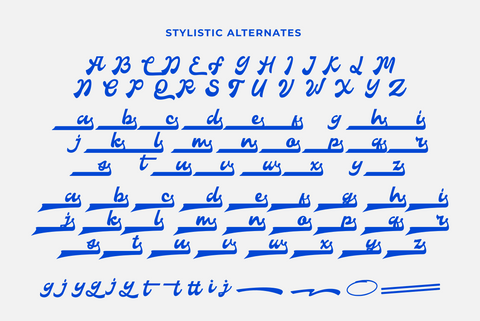 STYLISTIC ALTERNATES
A B C D E F G H I J K L M
N O P Q R S T U V W X Y Z
a b c d e f g h i
j k l m n o p q r
s t u v w x y z
a b c d e f g h i
j k l m n o p q r
s t u v w x y z
g j y g j y t t tt i j